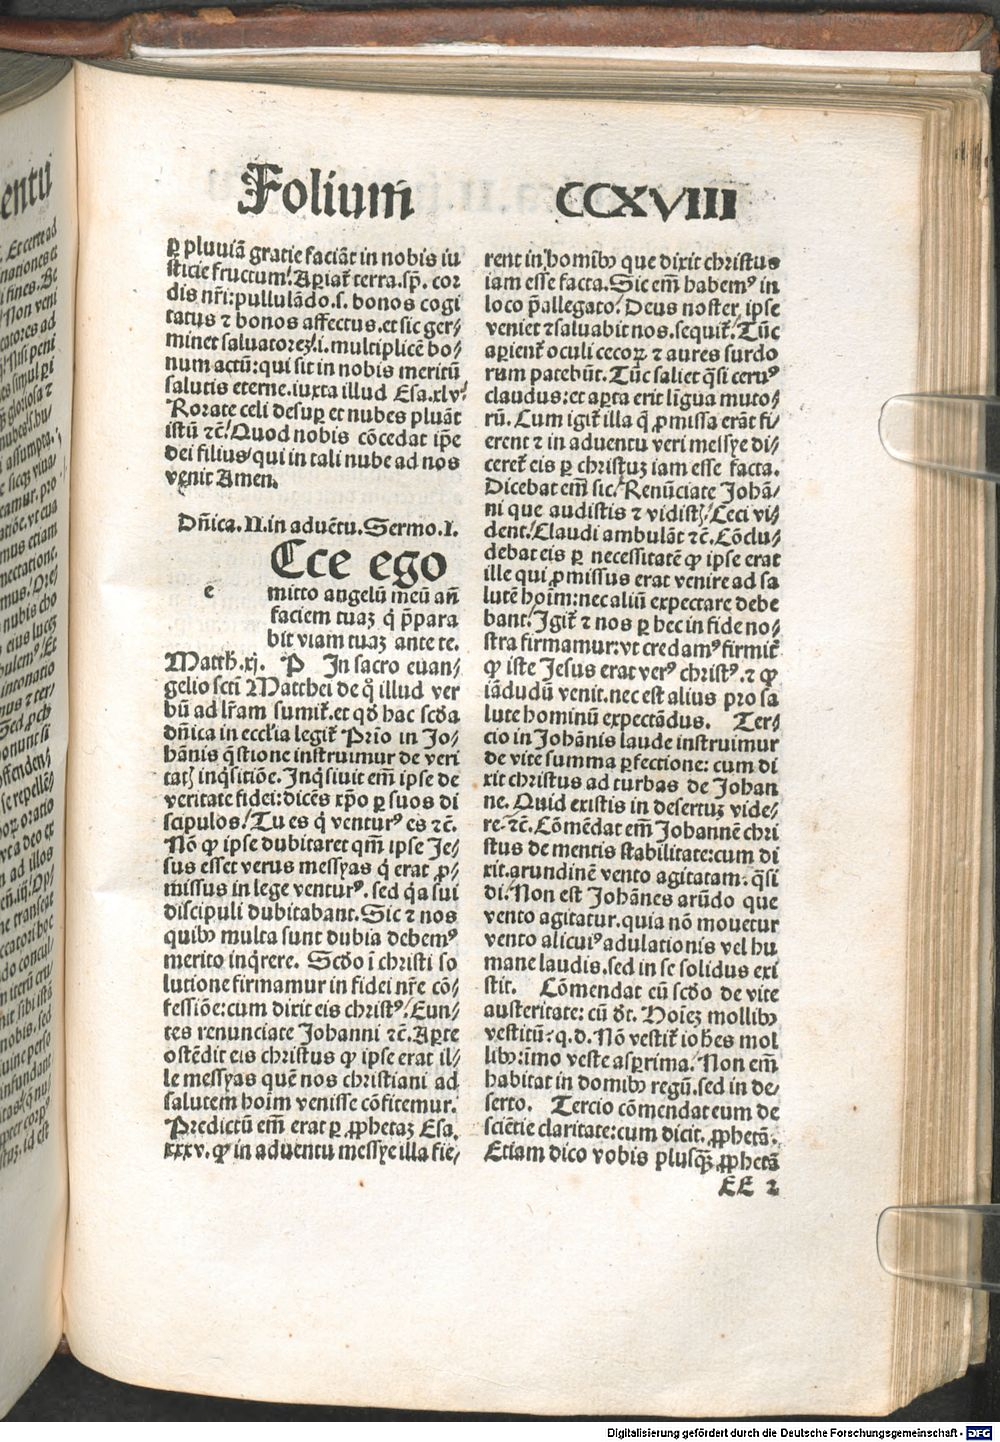 Folium CCXVIII
ꝑ pluuiā gratie faciāt in nobis iu
sticie fructum/ Aꝑiat̄ terra.sp̄. cor
dis nr̄i:pullulādo.s. bonos cogi
tatus ⁊ bonos affectus.et sic ger⸗
minet saluatoreꝫ.i. multiplicē bo⸗
num actū:qui sit in nobis meritū
salutis eterne.iuxta illud Esa.xlv.
Rorate celi desuꝑ et nubes pluāt
istū ⁊c̄/ Quod nobis cōcedat ip̄e
dei filius/ qui in tali nube ad nos
venit Amen.
Dn̄ica.II.in aduētu.Sermo.I.
Cce ego
e mitto angelū meū an̄
faciem tuaꝫ q̇ p̄para
bit viam tuaꝫ ante te.
Matth̄.xj. P In sacro euan⸗
gelio scti Matthei de q̊ illud ver
bū ad lr̄am sumit̄.et qd̓ hac scd̓a
dn̄ica in eccl̓ia legit̄ Prīo in Jo⸗
hānis q̄stione instruimur de veri
tatꝭ inq̇sitiōe. Inq̇siuit em̄ ipse de
veritate fidei:dicēs xp̄o ꝑ suos di
scipulos/ Tu es q̇ venturꝰ es ⁊c̄.
Nō ꝙ ipse dubitaret qm̄ ipse Je⸗
sus esset verus messyas q̇ erat ꝓ⸗
missus in lege venturꝰ. sed q̇a sui
discipuli dubitabant.Sic ⁊ nos
quibꝰ multa sunt dubia debemꝰ
merito inq̇rere. Scd̓o ī christi so
lutione firmamur in fidei nr̄e cō⸗
fessiōe:cum dixit eis christꝰ/ Eun⸗
tes renunciate Johanni ⁊c̄.Aꝑte
ostēdit eis christus ꝙ ipse erat il⸗
le messyas quē nos christiani ad
salutem hoīm venisse cōfitemur.
Predictū em̄ erat ꝑ ꝓphetaꝫ Esa.
xxxv. ꝙ in aduentu messye illa fie⸗
rent in hominibꝰ que dixit christus
iam esse facta.Sic em̄ habemꝰ in
loco p̄allegato/ Deus noster ipse
veniet ⁊ saluabit nos.sequit̄/ Tūc
aꝑient̄ oculi cecoꝝ ⁊ aures surdo
rum patebūt. Tūc saliet q̄si ceruꝰ
claudus: et aꝑta erit līgua muto⸗
rū. Cum igit̄ illa q̄ ꝓmissa erāt fi⸗
erent ⁊ in aduentu veri messye di⸗
ceret̄ eis ꝑ christuꝫ iam esse facta.
Dicebat em̄ sic/ Renūciate Johā⸗
ni que audistis ⁊ vidistꝭ/ Ceci vi⸗
dent/ Claudi ambulāt ⁊c̄. Cōclu⸗
debat eis ꝑ necessitatē ꝙ ipse erat
ille qui ꝓmissus erat venire ad sa
lutē hoīm: nec aliū expectare debe
bant. Igit̄ ⁊ nos ꝑ hec in fide no⸗
stra firmamur:vt credamꝰ firmit̄
ꝙ iste Jesus erat verꝰ christꝰ.⁊ ꝙ
iādudū venit.nec est alius pro sa
lute hominū expectādus. Ter⸗
cio in Johānis laude instruimur
de vite summa ꝑfectione: cum di
xit christus ad turbas de Johan
ne. Quid existis in desertuꝫ vide⸗
re. ⁊c̄. Cōmēdat em̄ Johannē chri
stus de mentis stabilitate:cum di
xit.arundinē vento agitatam. q̄si
di. Non est Johānes arūdo que
vento agitatur.quia nō mouetur
vento alicuiꝰ adulationis vel hu
mane laudis.sed in se solidus exi
stit. Cōmendat eū scd̓o de vite
austeritate: cū d̄t. Hoīeꝫ mollibꝰ
vestitū. q.d. Nō vestit̄ ioh̄es mol
libꝰ:īmo veste asꝑrima. Non em̄
habitat in domibꝰ regū.sed in de⸗
serto. Tercio cōmendat eum de
sciētie claritate:cum dicit. ꝓphetā.
Etiam dico vobis plusq̄ꝫ ꝓphetā
EE 2
entū
Digitalisierung gefördert durch die Deutsche Forschungsgemeinschaft - DFG